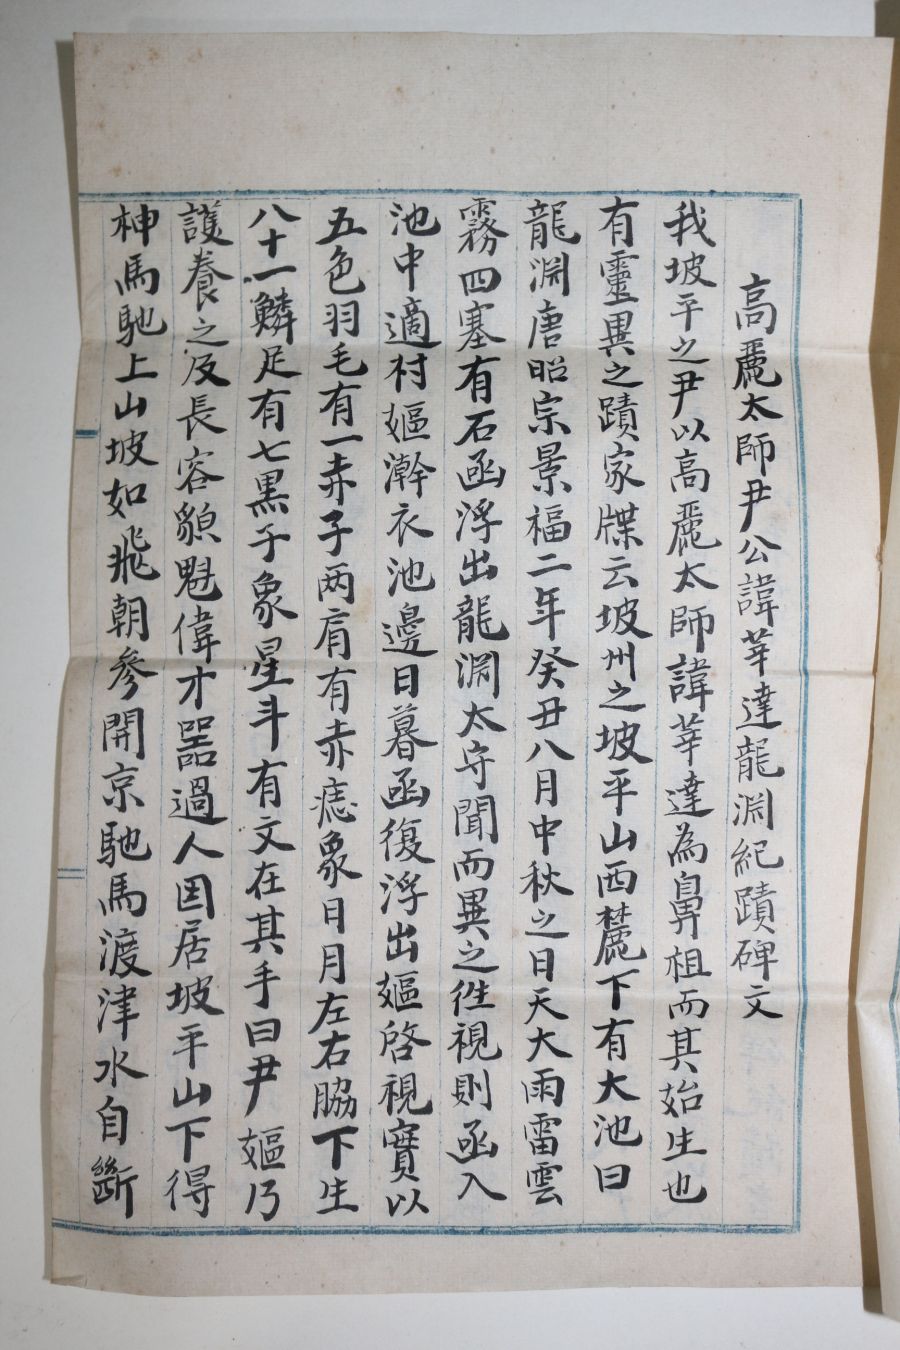 高麗太師尹公諱莘達龍淵紀蹟碑文
我坡平之尹以高麗太師諱莘達為鼻祖而其始生也
有靈異之蹟家牒云坡州之坡平山西麓下有大池曰
龍淵唐昭宗景福二年癸丑八月中秋之日天大雨雷雲
霧四塞有石函浮出龍淵太守聞而異之徃視則函入
池中適村嫗澣衣池邊日暮函復浮出嫗啓視實以
五色羽毛有一赤子两肩有赤痣象日月左右脇下生
八十一鱗足有七黒子象星斗有文在其手曰尹嫗乃
護養之及長容貌魁偉才器過人因居坡平山下得
神馬馳上山坡如飛朝參開京馳馬渡津水自斷